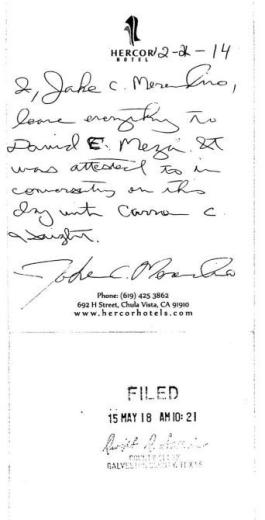 HERCOR
HOTEL
12-2-14
I, Jake C. Merendino,
leave everything to
David E. Meza. It
was attested to in
conversation on this
day with
C.
Phone: (619) 425 3862
692 H Street, Chula Vista, CA 91910
www.hercorhotels.com
FILED
15 MAY 18 AM 10: 21
COUNTY CLERK
GALVESTON COUNTY, TEXAS